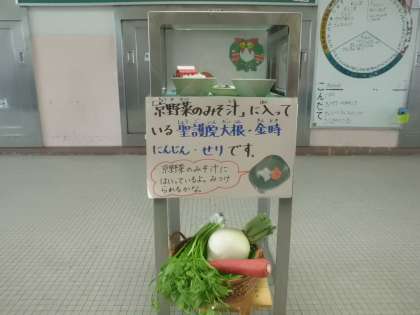 京野菜のみそ汁」に入って
いる聖護院大根・金時
にんじん・せりです。
京野菜のみそ汁に
はいっているよ。みつけ
られるかな。
こんだて